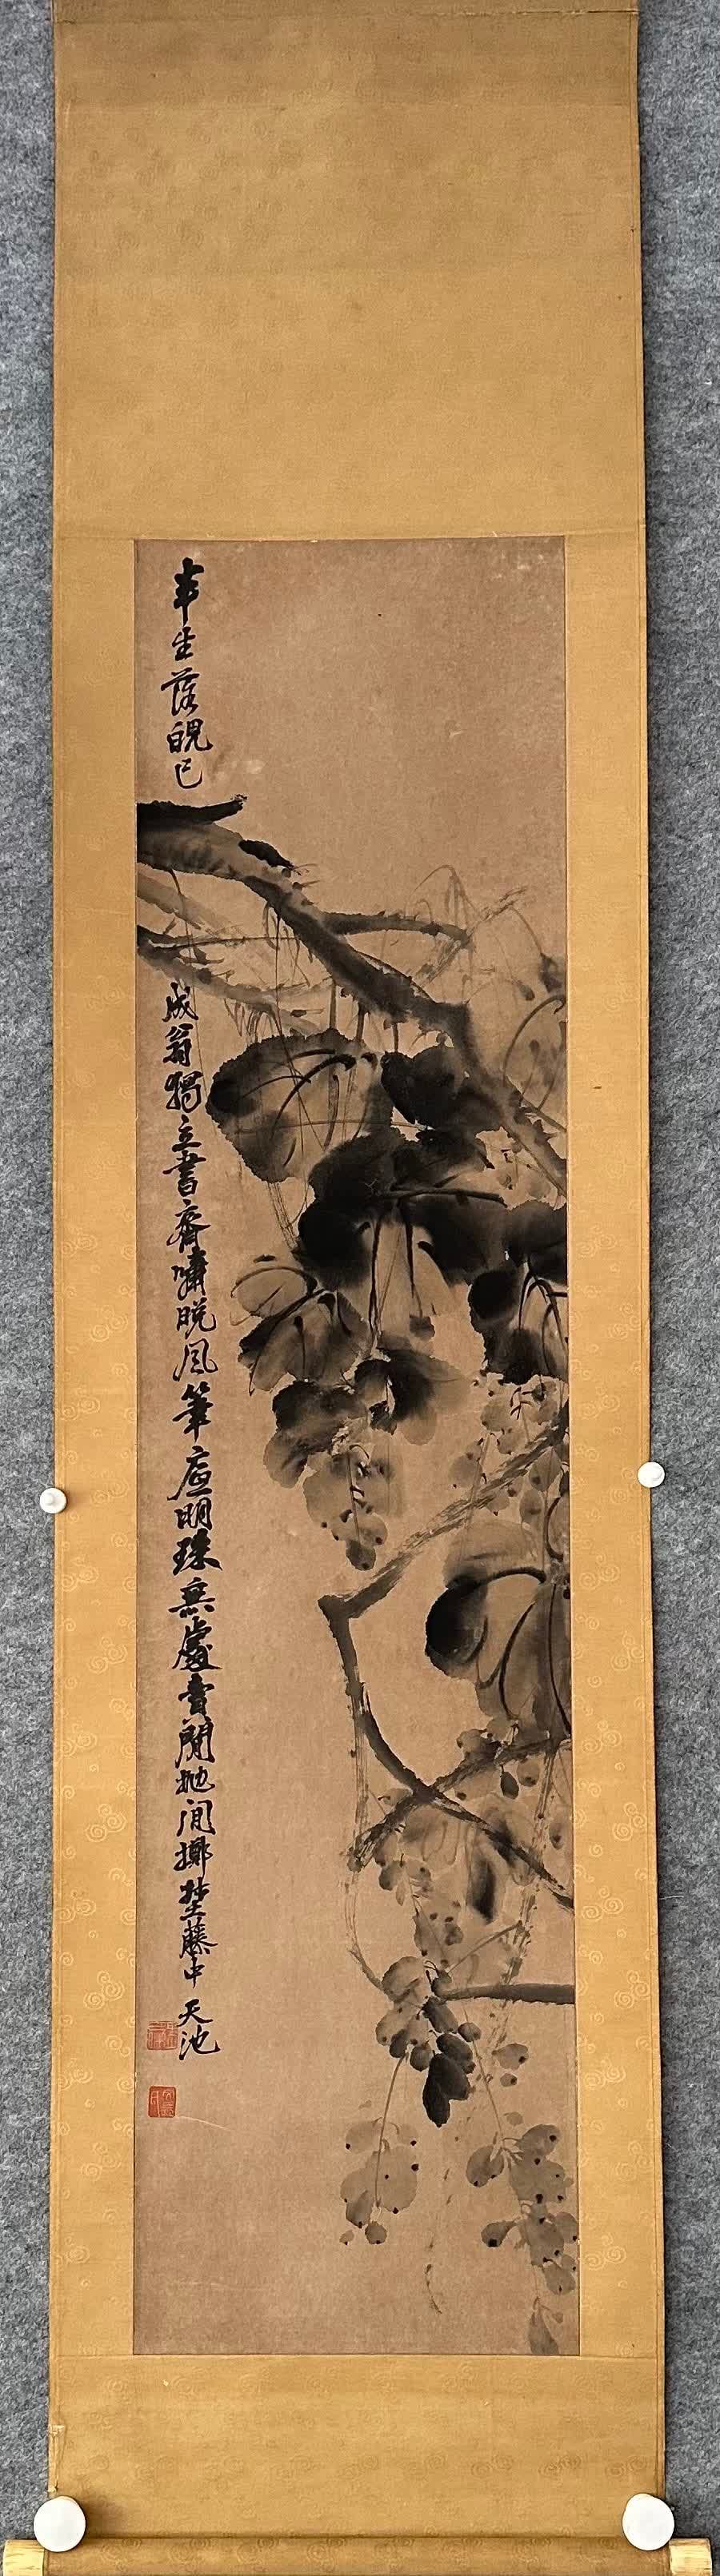 半生落魄已
成翁獨立書齋嘯晚風筆底明珠無處賣閒拋閒擲埜藤中 天池